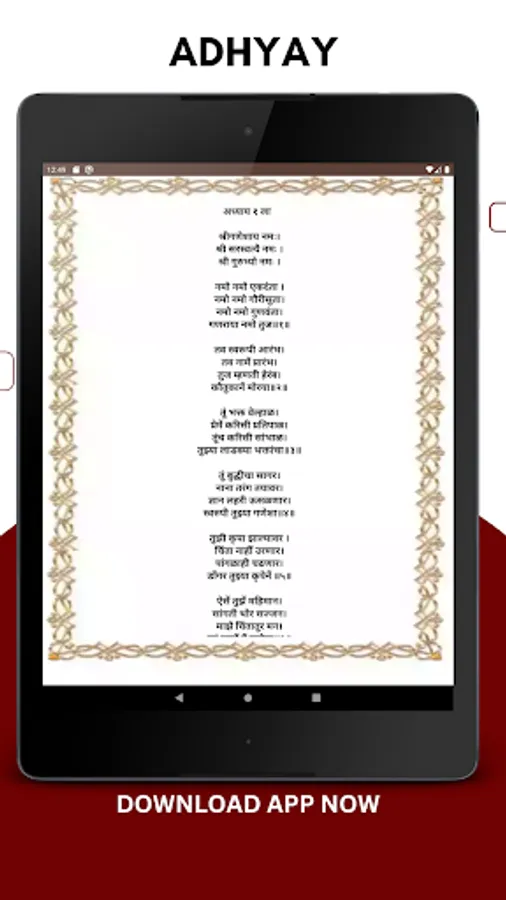 ADHYAY
12:49
अध्याय १ ला
श्रीगणेशाय नमः।
श्री सरस्वत्यै नमः ।
श्री गुरुभ्यो नमः ।
नमो नमो एकदंता ।
नमो नमो गौरीसुता।
नमो नमो गुणवंता।
गणराया नमो तुज॥१॥
तव स्वरूपी आरंभ।
तव नामें प्रारंभ।
तुज म्हणती हेरंब।
कौतुकानें मोरया॥२॥
तूं भक्त वेल्हाळ।
प्रेमें करिसी प्रतिपाळ।
तूंच करिसी सांभाळ।
तुझ्या लाडक्या भक्तांचा॥३॥
तूं बुद्धीचा सागर।
नाना तरंग तयावर।
ज्ञान लहरी उसळणार।
स्वरुपी तुझ्या गणेशा॥४॥
तुझी कृपा झाल्यावर ।
चिंता नाहीं उरणार।
पांगळाही चढणार।
डोंगर तुझ्या कृपेनें ॥५॥
ऐसें तुझें महिमान।
सांगती थोर सज्जन।
माझे चिंतातूर मन।
DOWNLOAD APP NOW